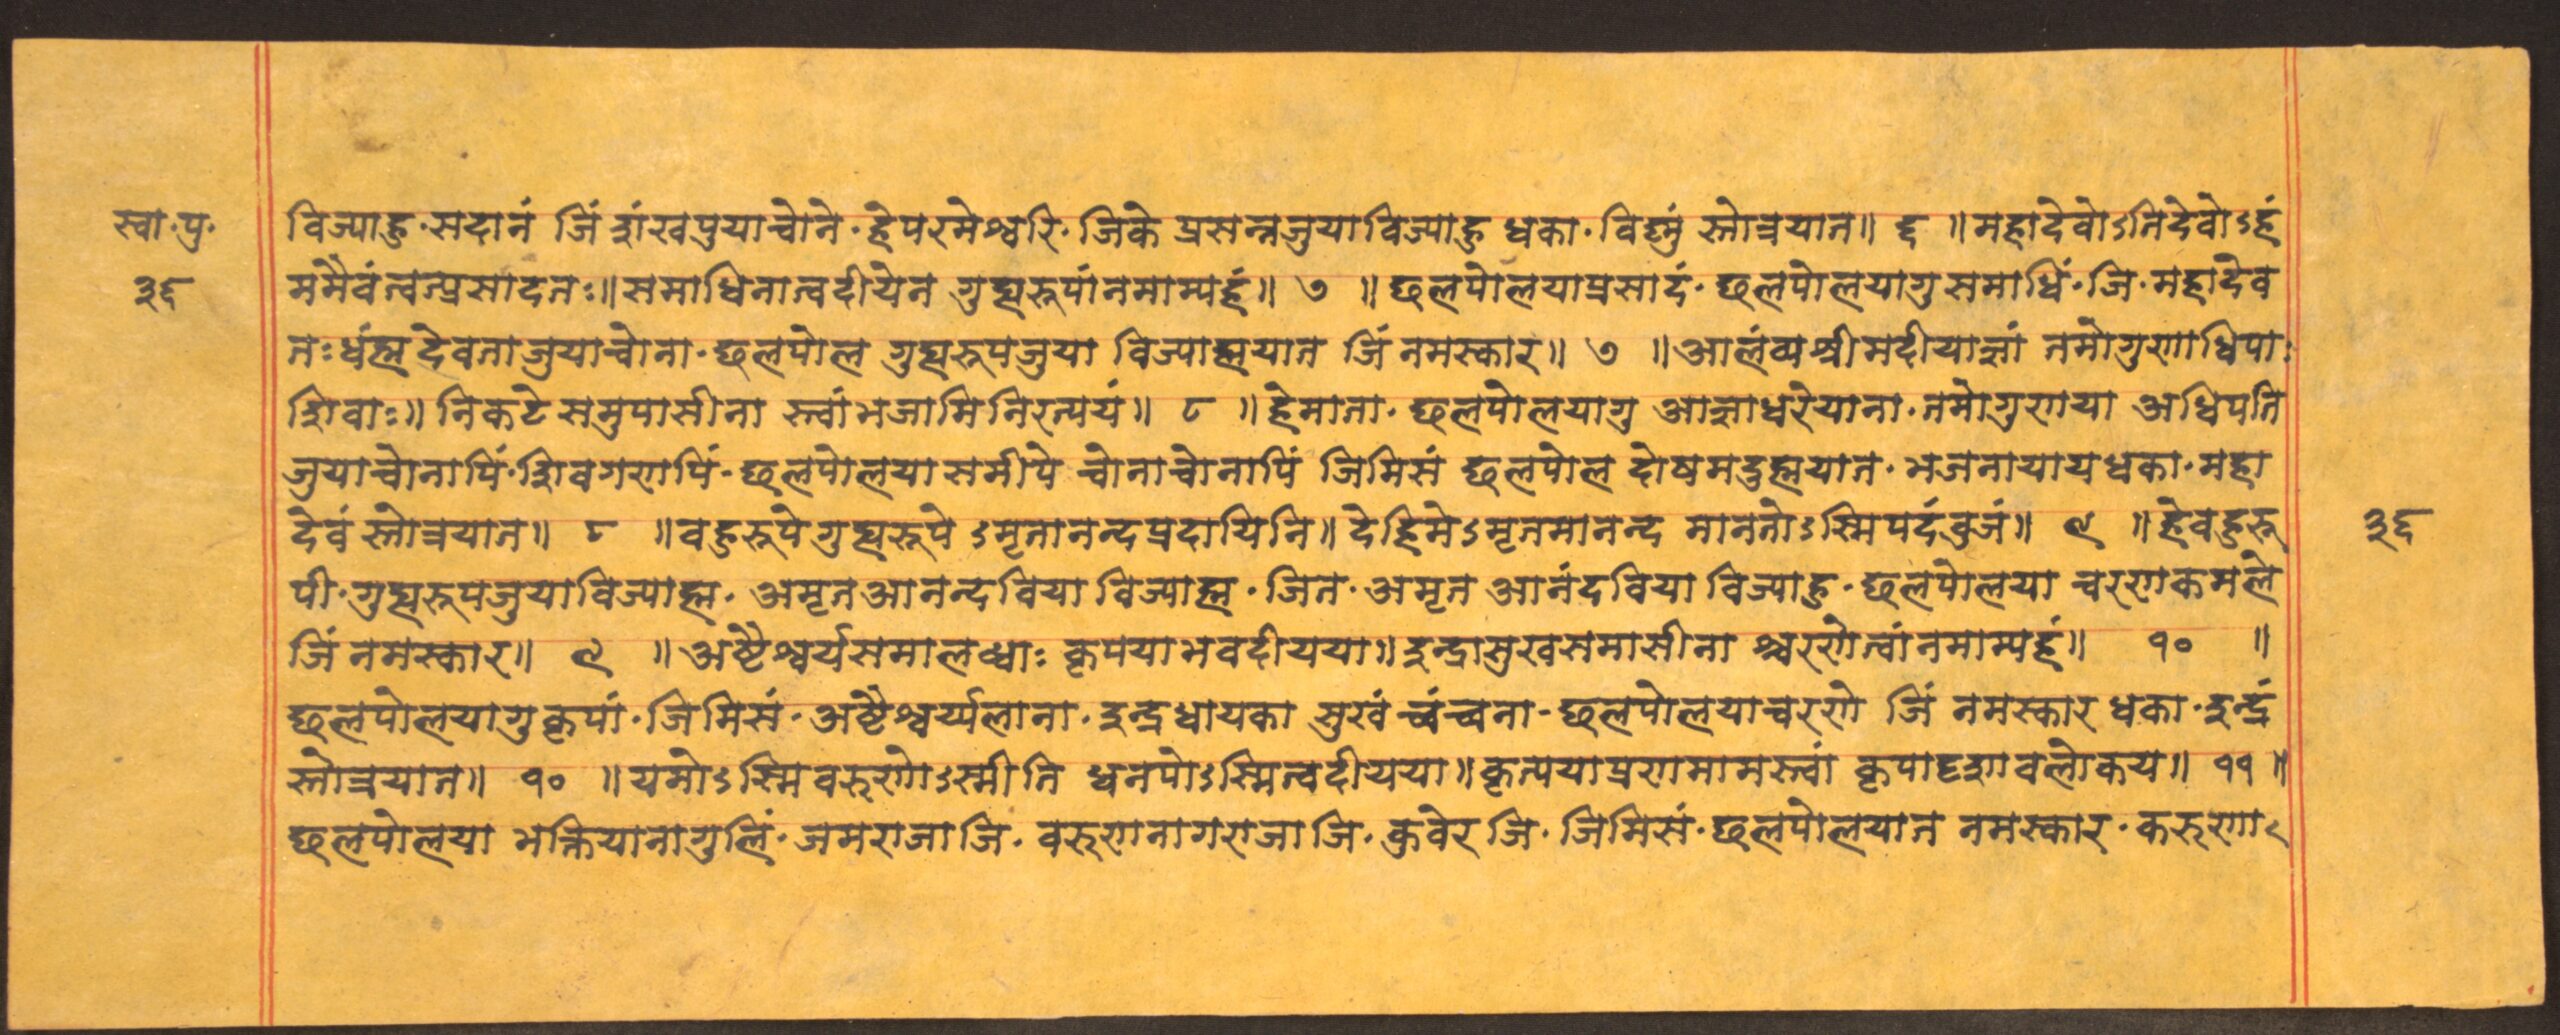 स्वा·पु·
३६
विज्याहु·सदानं जिं शंखपुयाच्वोने·हेपरमेश्वरि·जिके प्रसन्नजुयाविज्याहु धका·विष्णुं स्तोत्रयात॥ ६ ॥महादेवोऽतिदेवोऽहं
ममैवंत्वत्प्रसादतः॥समाधिनात्वदीयेन गुह्यरूपांनमाम्यहं॥ ७ ॥छलपोलयाप्रसादं·छलपोलयागुसमाधिं·जि·महादेव
तःधंह्म देवताजुयाच्वोना·छलपोल गुह्यरूपजुया विज्याह्मयात जिं नमस्कार॥ ७ ॥आलंव्यश्रीमदीयाज्ञां नमोगुणाधिपाः
शिवाः॥निकटेसमुपासीना स्त्वांभजामिनिरत्ययं॥ ८ ॥हेमाता·छलपोलयागु आज्ञाधरेयाना·तमोगुणया अधिपति
जुयाच्वोनापिं·शिवगणपिं·छलपोलयासमीपे च्वोनाच्वोनापिं जिमिसं छलपोल दोषमदुह्मयात·भजनायायधका·महा
देवं स्तोत्रयात॥ ८ ॥वहुरूपेगुह्यरूपेऽमृतानन्दप्रदायिनि॥देहिमेऽमृतमानन्द मानतोऽस्मिपदंवुजं॥ ९ ॥हेवहुरू
३६
पी·गुह्यरूपजुयाविज्याह्म·अमृतआनन्दविया विज्याह्म·जित·अमृत आनंदविया विज्याहु·छलपोलया चरणकमले
जिं नमस्कार॥ ९ ॥अष्टैश्वर्यसमालव्धाः कृपयाभवदीयया॥इन्द्रासुखसमासीना श्चरणेत्वांनमाम्यहं॥ १० ॥
छलपोलयागुकृपां·जिमिसं·अष्टैश्वर्य्यलाना·इन्द्रधायका सुखं च्वंच्वना·छलपोलयाचरणे जिं नमस्कार धका·इन्द्रं
स्तोत्रयात॥ १० ॥यमोऽस्मिवरुणोऽस्मीति धनपोऽस्मित्वदीयया॥कृत्ययाप्रणमामस्त्वां कृपादृशावलोकय॥ ११ ॥
छलपोलया भक्तियानागुलिं·जमराजाजि·वरुणनागराजाजि·कुवेर जि·जिमिसं·छलपोलयात नमस्कार·करुणा